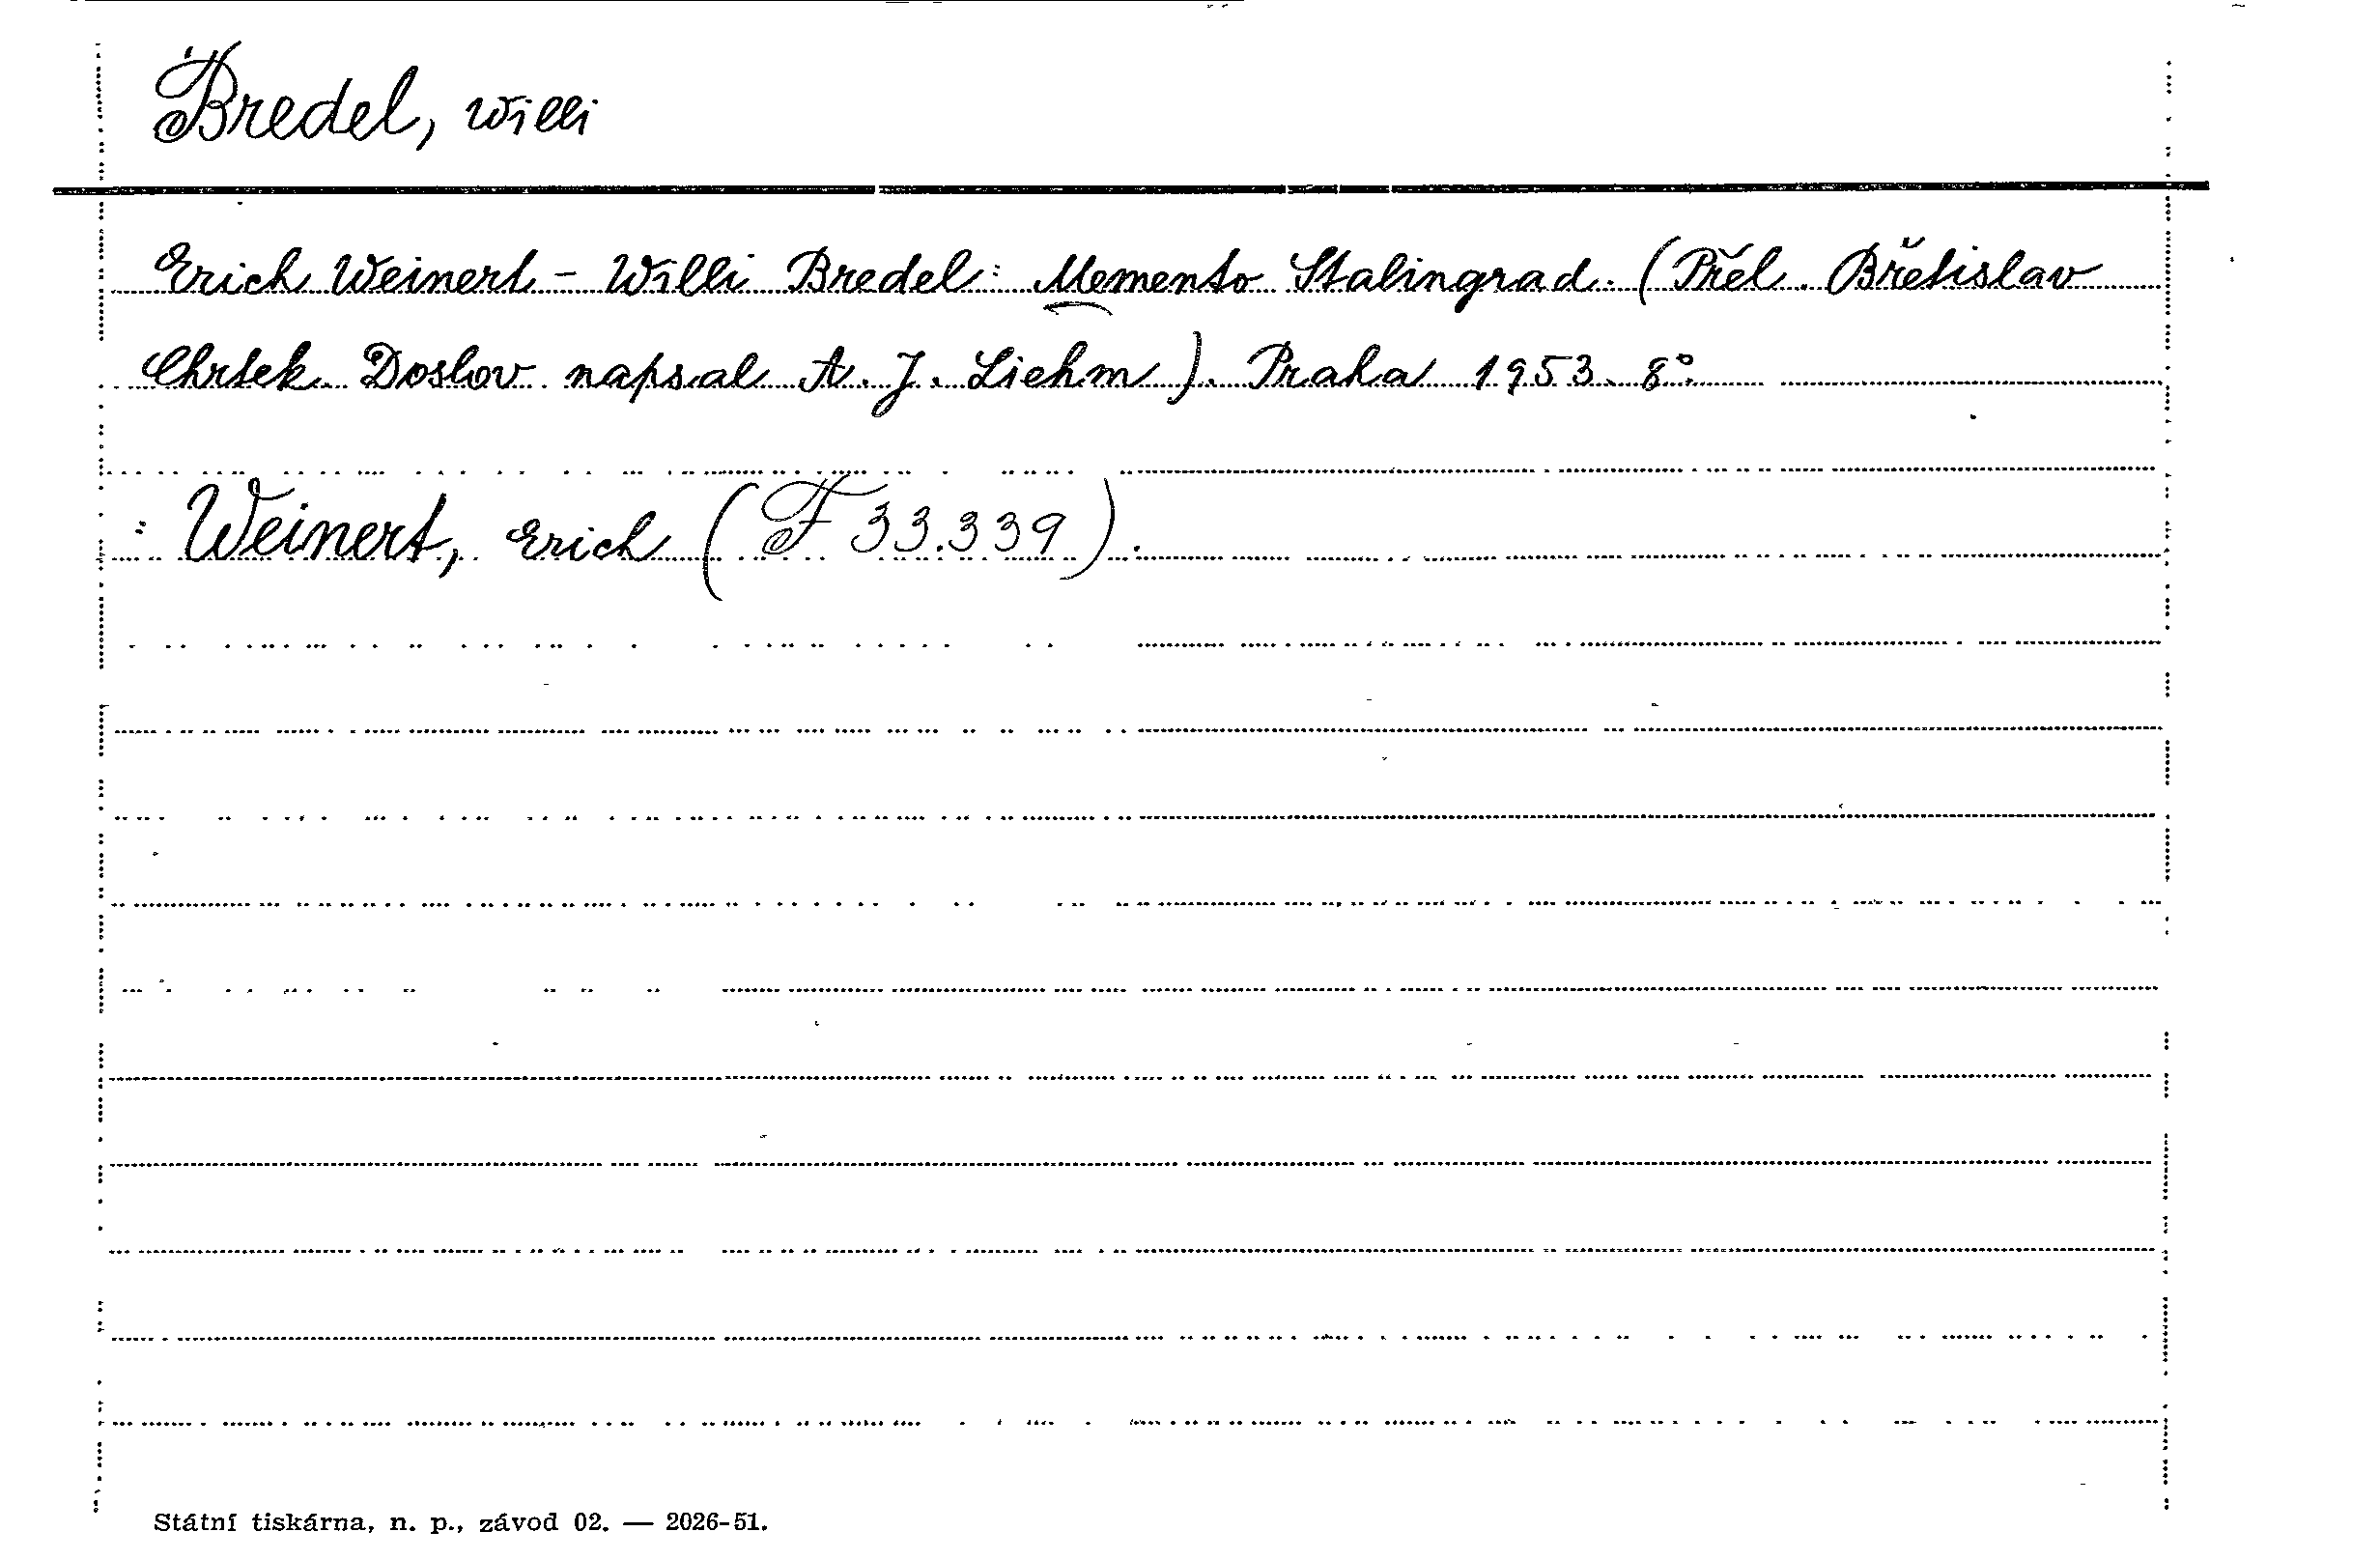 Bredel, Willi
Erich Weinert - Willi Bredel: Memento Stalingrad. (Přel. Břetislav
Chrtek. Doslov napsal A. J. Liehm). Praha 1953. 8°.
: Weinert, Erich (F 33.339).
Státní tiskárna, n. p., závod 02. — 2026-51.